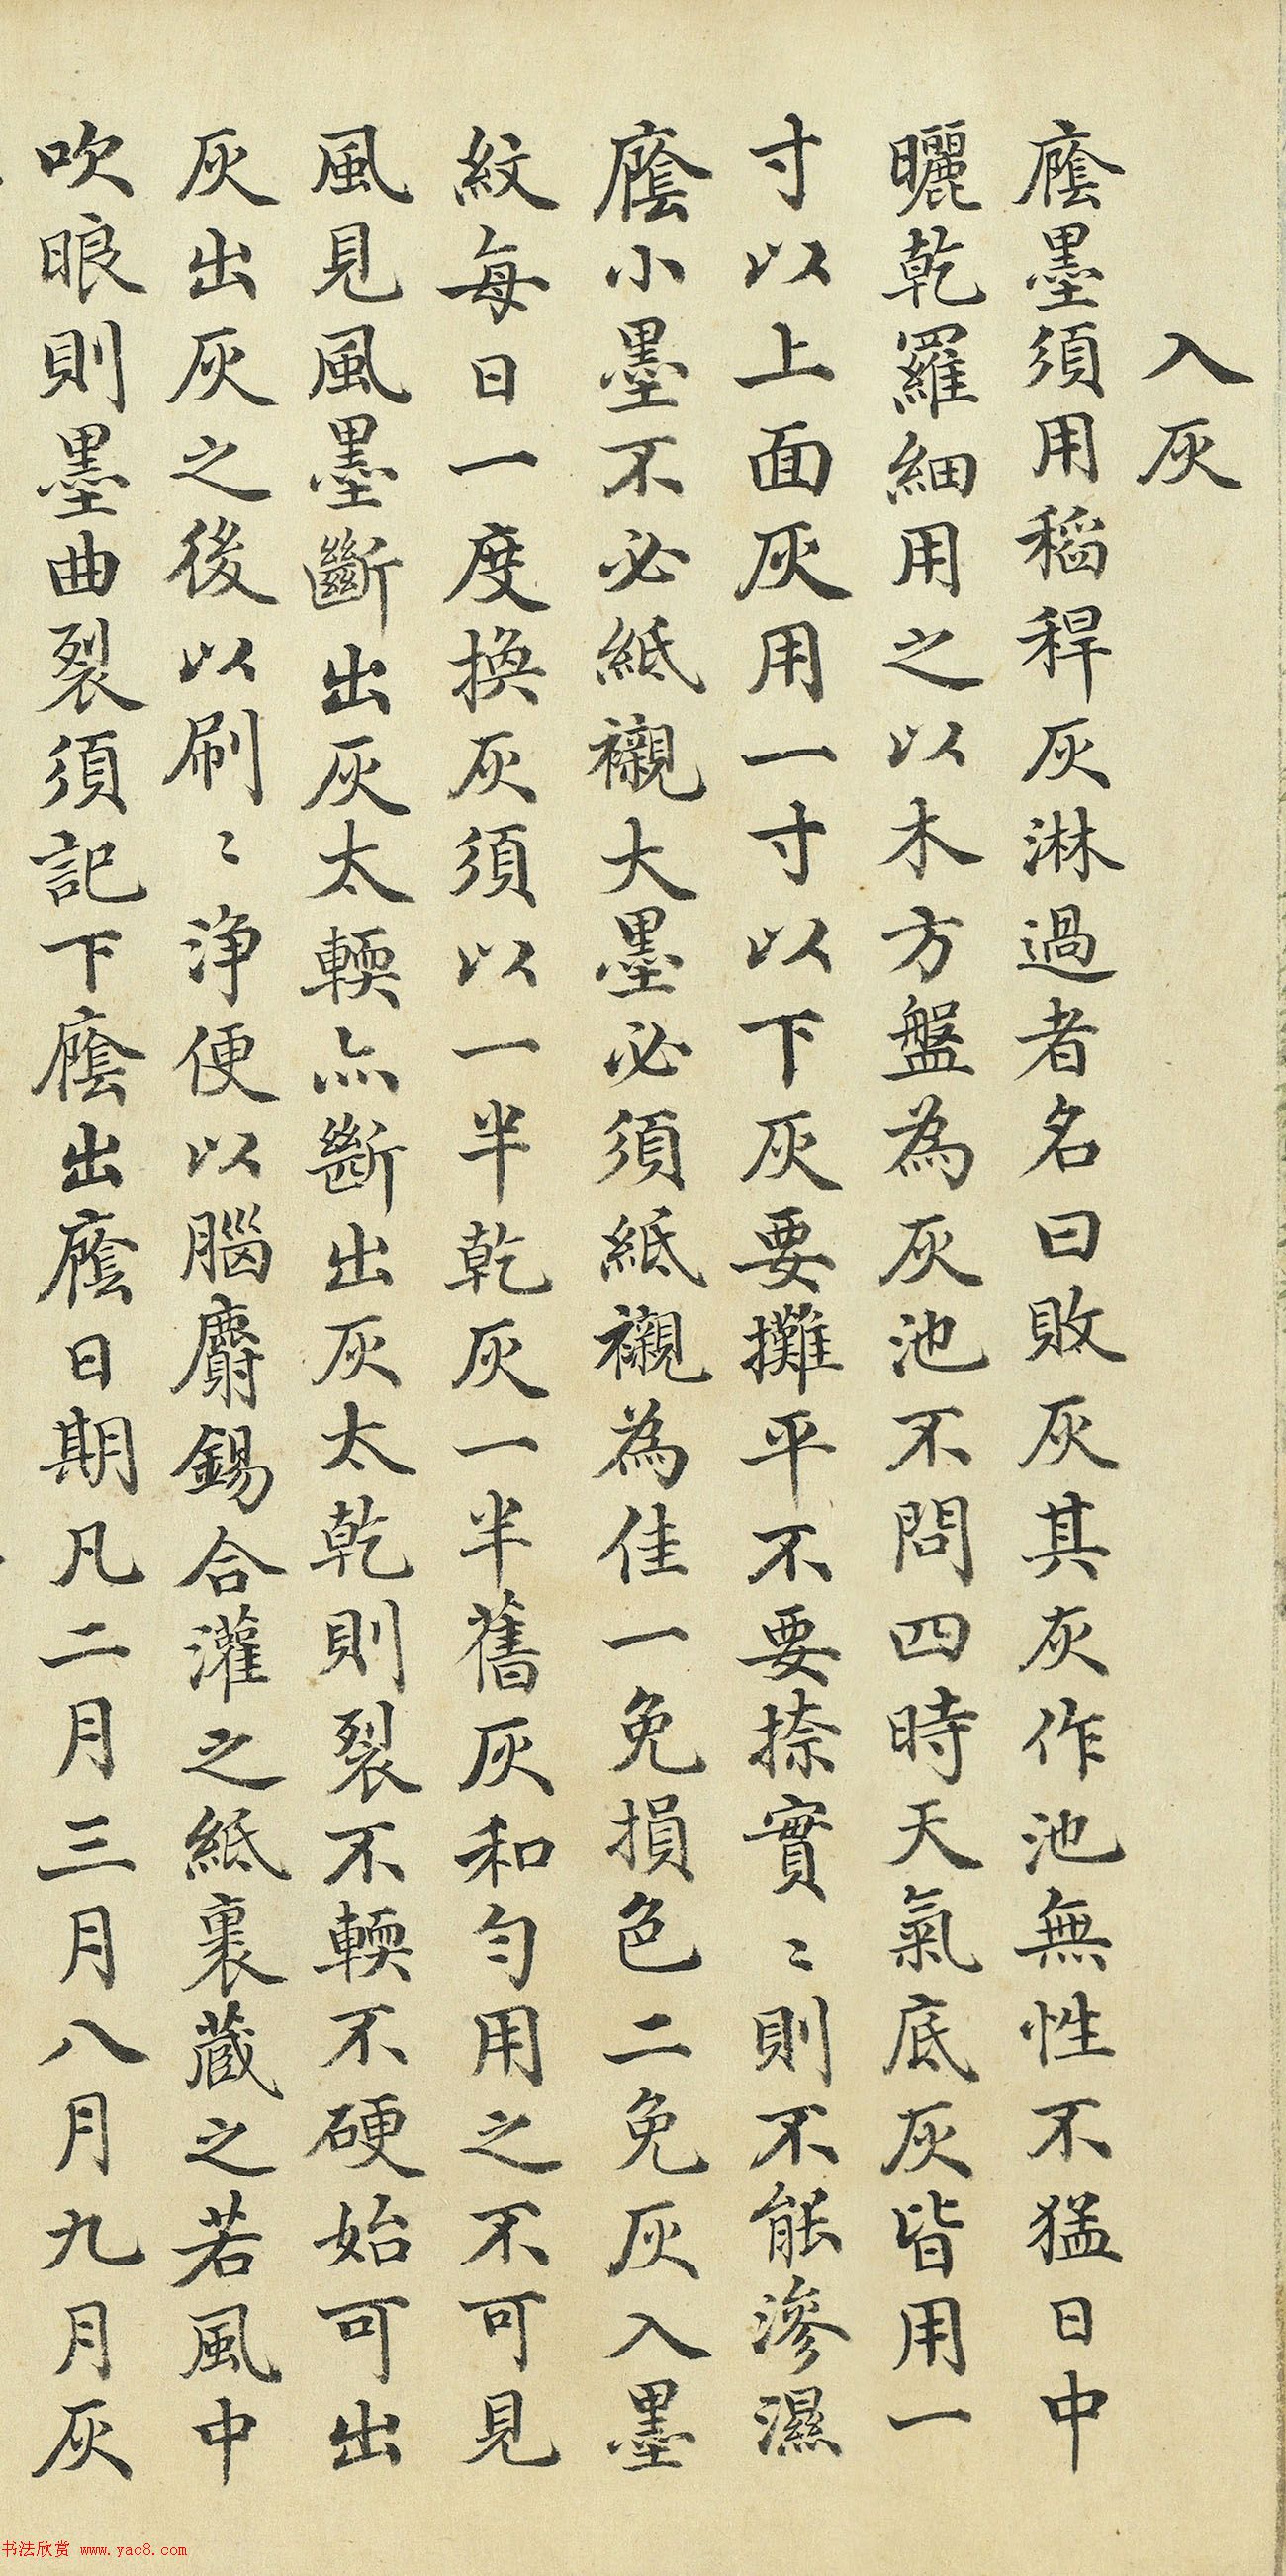 入灰
廕墨須用稻稈灰淋過者名曰敗灰其灰作池無性不猛日中
曬乾羅細用之以木方盤為灰池不問四時天氣底灰皆用一
寸以上面灰用一寸以下灰要攤平不要捺實〻則不能滲濕
廕小墨不必紙襯大墨必須紙襯為佳一免損色二免灰入墨
紋每日一度換灰須以一半乾灰一半舊灰和勻用之不可見
風見風墨斷出灰太輭亦斷出灰太乾則裂不輭不硬始可出
灰出灰之後以刷〻淨便以腦麝錫合灌之紙裹藏之若風中
吹眼則墨曲裂須記下廕出廕日期凡二月三月八月九月灰
书法欣赏 www.yac8.com